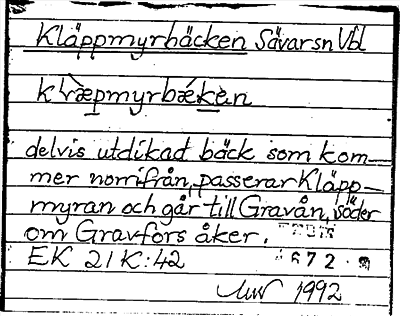 Kläppmyrbäcken Sävarsn Vbl
delvis utdikad bäck som kom-
mer norrifrån, passerar Kläpp-
myran och går till Gravån, söder
om Gravfors åker.
EK 21K:42
672
1992